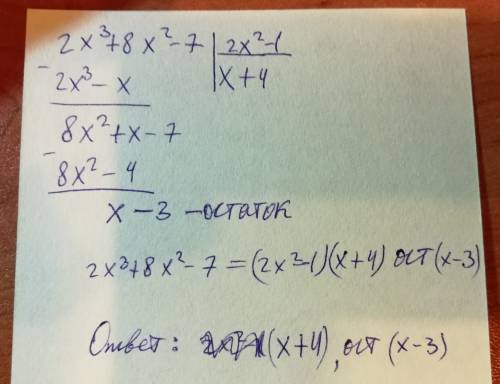 2x³+8x²-7 | 2x²-1
- 2x³ - x | x+4
8x²+x-7
- 8x² - 4
x-3 - остаток
2x³+8x²-7=(2x²-1)(x+4) ост(x-3)
Ответ: (x+4), ост (x-3)